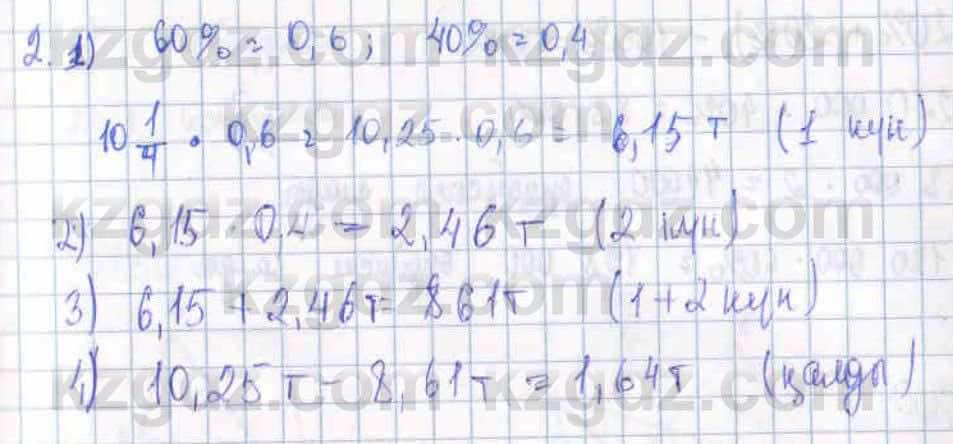 2. 1) 60% = 0,6; 40% = 0,4
10 1/4 · 0,6 = 10,25 · 0,6 = 6,15 т (1 күн)
2) 6,15 · 0,4 = 2,46 т (2 күн)
3) 6,15 + 2,46т = 8 61т (1+2 күн)
4) 10,25 т – 8,61 т = 1,64т (қалды)
kzgdz.com